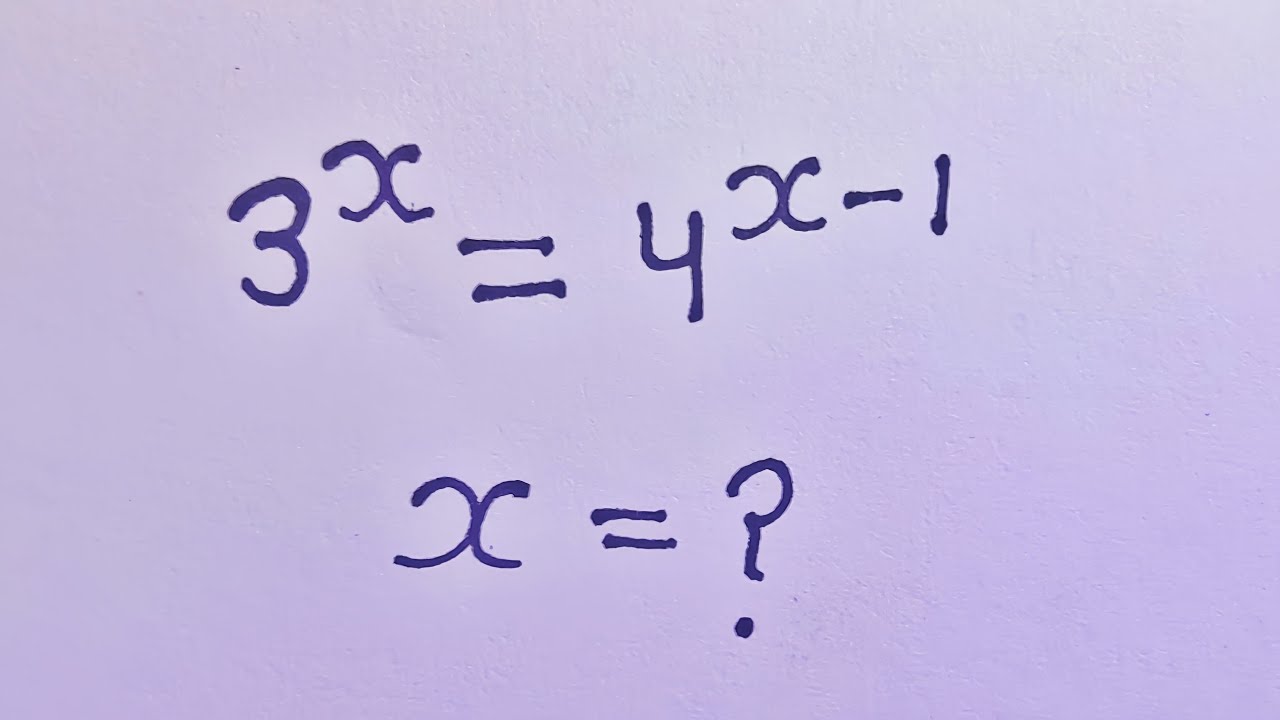 3^x = 4^x-1
x = ?